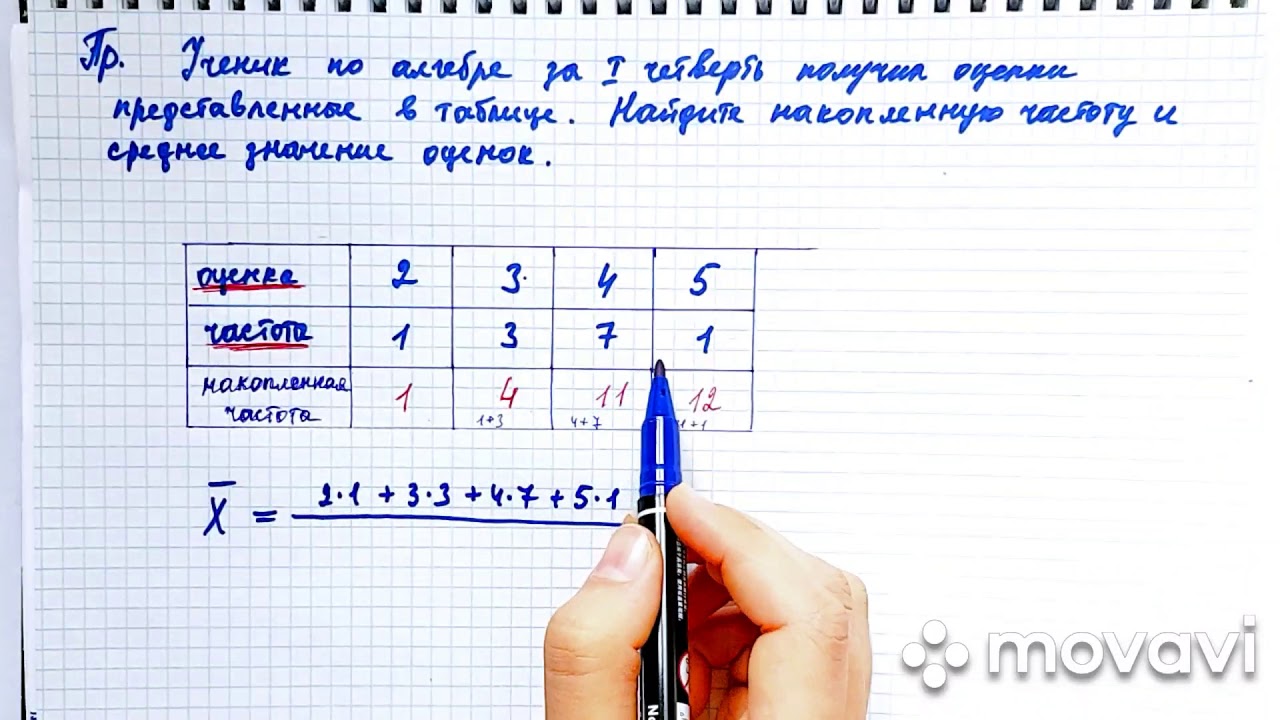 Пр. Ученик по алгебре за I четверть получил оценки
представленные в таблице. Найдите накопленную частоту и
среднее значение оценок.
оценка 2 3 4 5
частота 1 3 7 1
накопленная частота 1 4 11 12
1+3 4+7
X̅ = 2·1 + 3·3 + 4·7 + 5·1
movavi